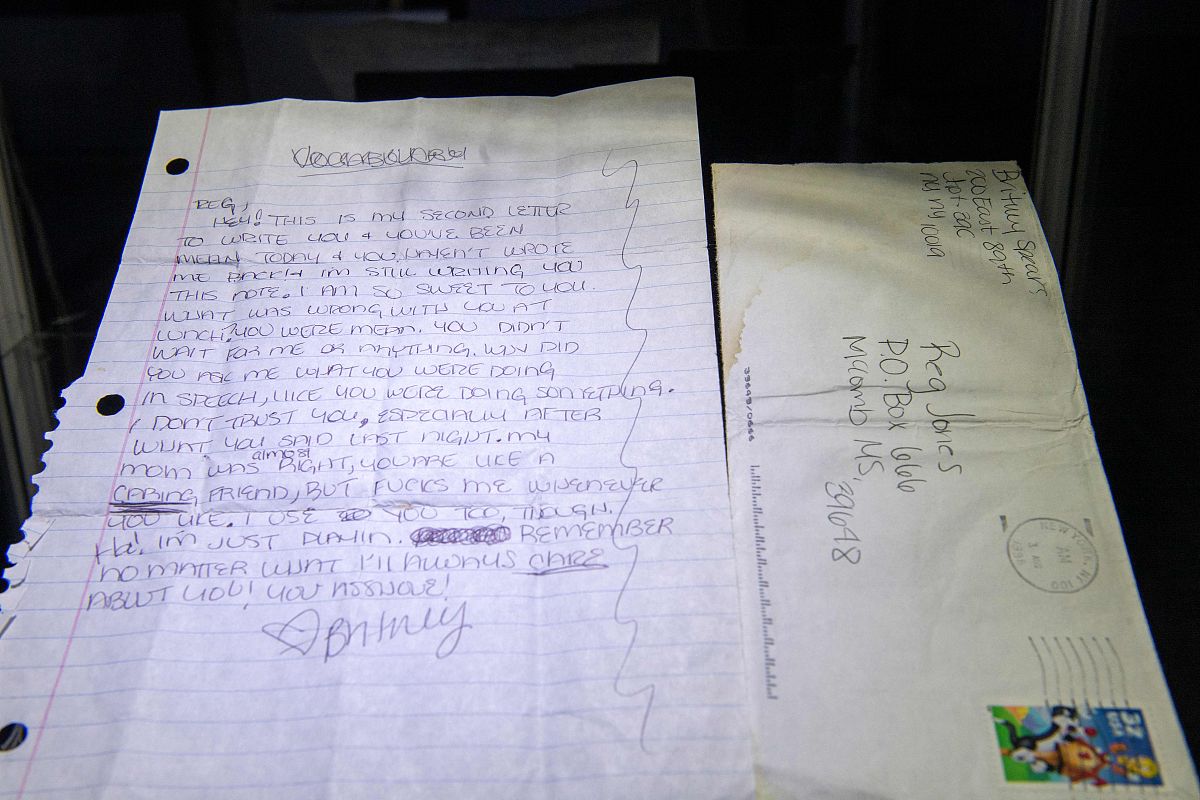 VOCABULARY
REG,
HEY! THIS IS MY SECOND LETTER
TO WRITE YOU & YOU'VE BEEN
MEAN TODAY & YOU HAVEN'T WROTE
ME BACK! & IM STILL WRITING YOU
THIS NOTE. I AM SO SWEET TO YOU.
WHAT WAS WRONG WITH YOU AT
LUNCH? YOU WERE MEAN. YOU DIDN'T
WAIT FOR ME OR ANYTHING. WHY DID
YOU ASK ME WHAT YOU WERE DOING
IN SPEECH, LIKE YOU WERE DOING SOMETHING.
I DON'T TRUST YOU, ESPECIALLY AFTER
WHAT YOU SAID LAST NIGHT. MY
MOM WAS almost RIGHT, YOU ARE LIKE A
CARING FRIEND, BUT FUCKS ME WHENEVER
YOU LIKE. I USE YOU TOO, THOUGH.
Ha! IM JUST PLAYIN. REMEMBER
NO MATTER WHAT I'll ALWAYS CARE
ABOUT YOU! YOU ASSHOLE!
Britney
Britney Spears
200 East 89th
Apt 22C
NY NY
Reg Jones
P.O. Box 666
McComb MS,
39648
39649/0666
NEW YORK, NY 100
AM
3 AUG
32
USA